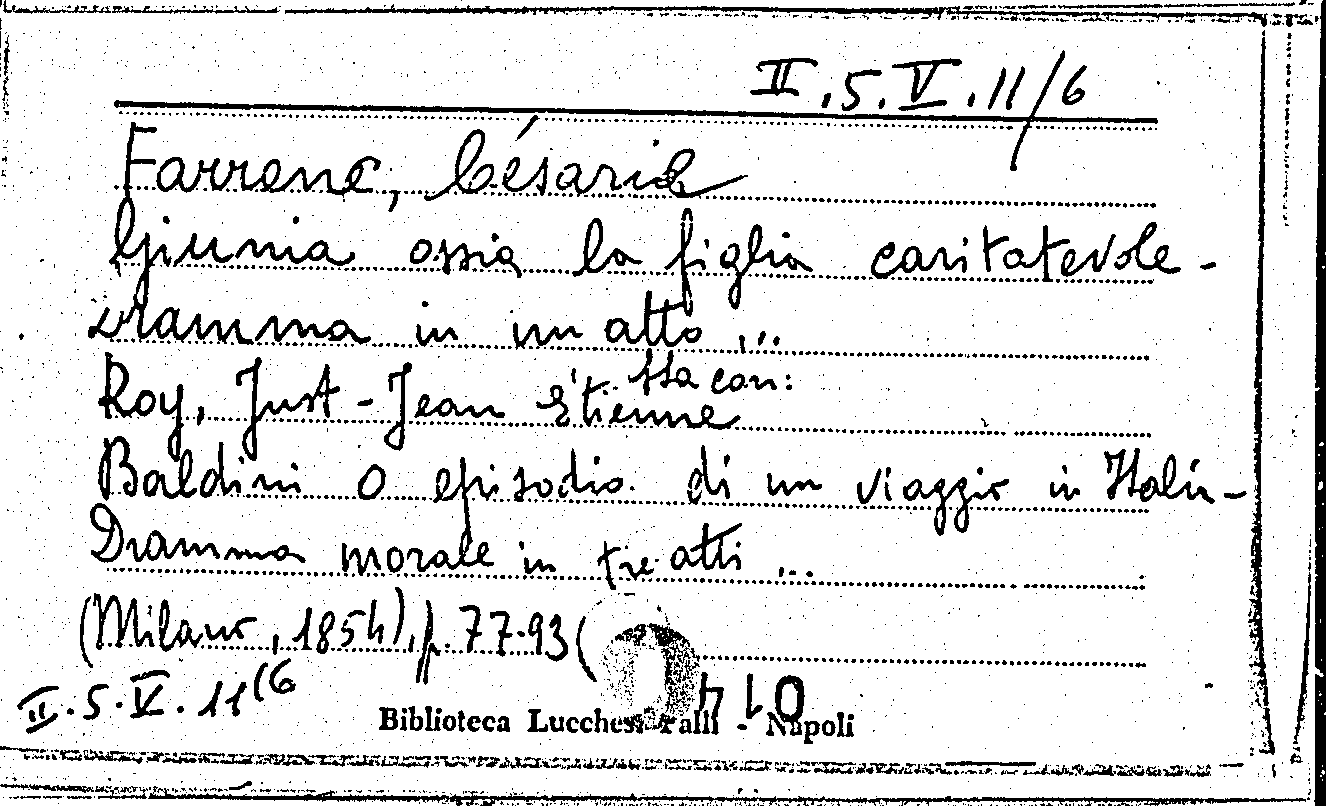 II.5.V.11/6
Farrenc, Césarie
Giunia ossia la figlia caritatevole -
Dramma in un atto ...
Sta con:
Roy, Just-Jean Étienne
Baldini o episodio di un viaggio in Italia -
Dramma morale in tre atti ...
(Milano, 1854), p. 77-93 (
II.5.V.11(6
014
Biblioteca Lucchesi Palli - Napoli